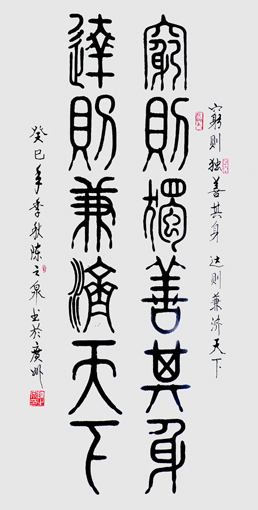 穷则独善其身 达则兼济天下
窮則獨善其身
達則兼濟天下
癸巳年季秋陈之泉书於广州